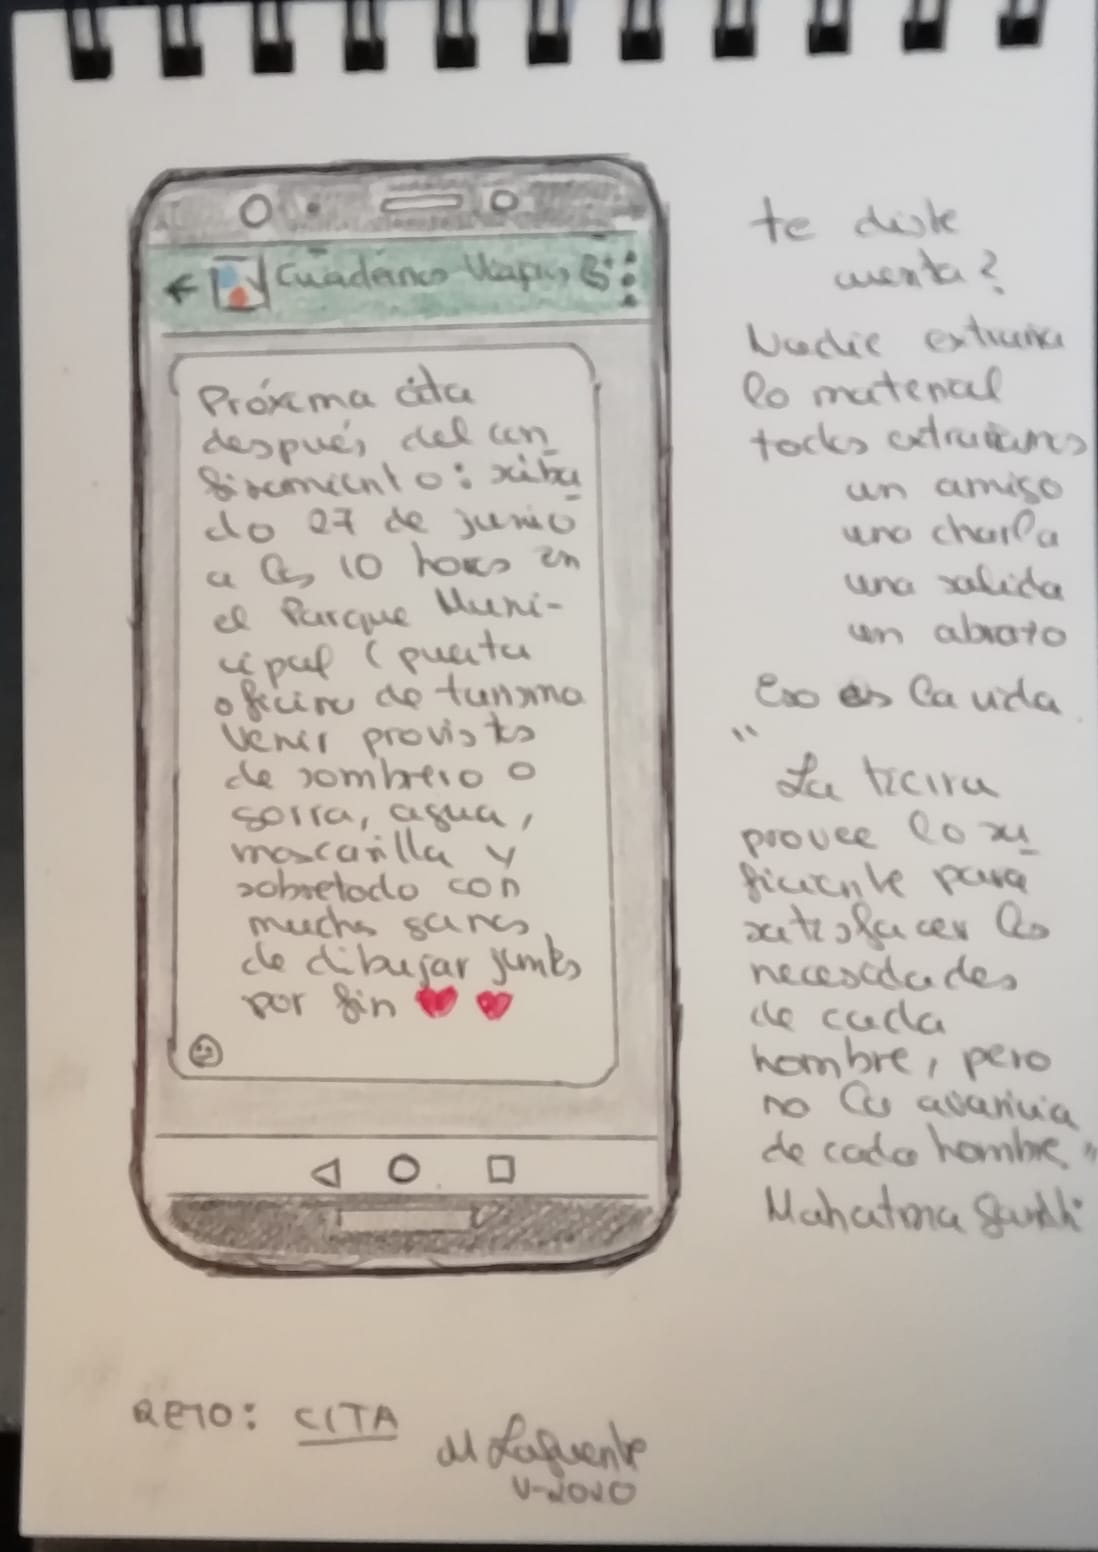 Cuadernos Viajeros
Próxima cita
después del con
finamiento: sába
do 27 de junio
a las 10 horas en
el Parque Muni-
cipal (puerta
oficina de turismo
venir provistos
de sombrero o
gorra, agua,
mascarilla y
sobretodo con
muchas ganas
de dibujar juntos
por fin
te diste
cuenta?
Nadie extraña
lo material
todos extrañamos
un amigo
una charla
una salida
un abrazo
Eso es la vida
"
La tierra
provee lo su
ficiente para
satisfacer las
necesidades
de cada
hombre, pero
no la avaricia
de cada hombre."
Mahatma Gandhi
RETO: CITA
M Lafuente
V-2020